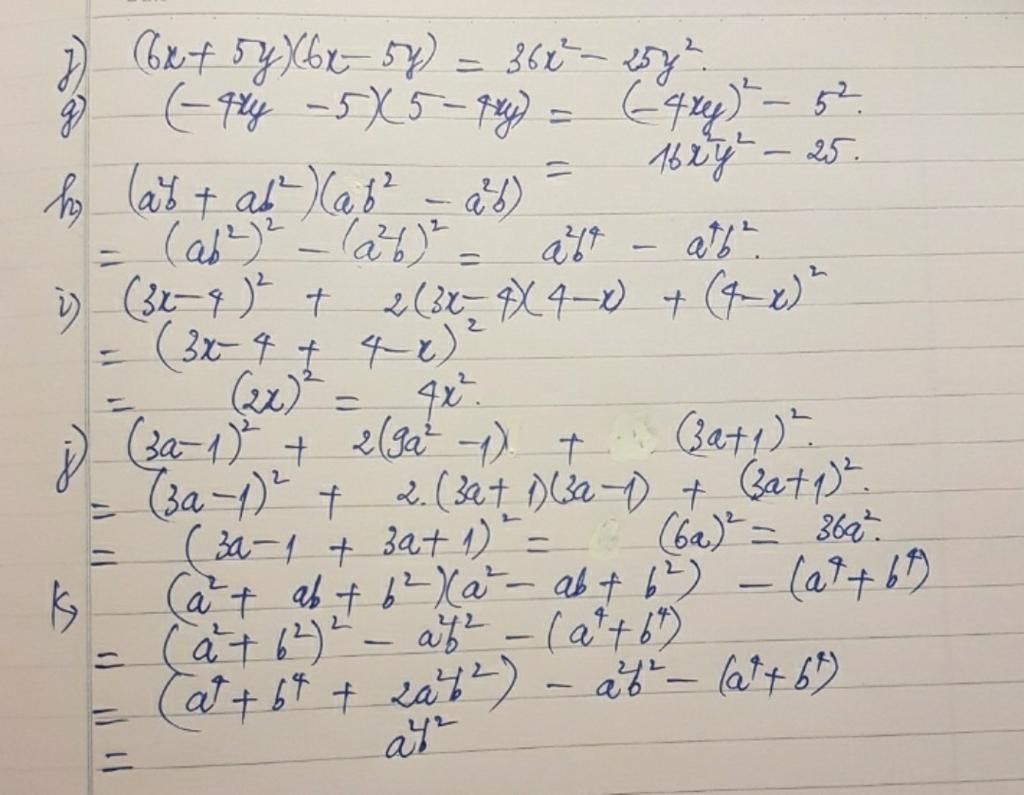 f) (6x + 5y)(6x - 5y) = 36x² - 25y².
g) (-4xy - 5)(5 - 4xy) = (-4xy)² - 5².
= 16x²y² - 25.
h) (a²b + ab²)(ab² - a²b)
= (ab²)² - (a²b)² = a²b⁴ - a⁴b².
i) (3x - 4)² + 2(3x - 4)(4 - x) + (4 - x)²
= (3x - 4 + 4 - x)²
= (2x)² = 4x².
j) (3a - 1)² + 2(9a² - 1) + (3a + 1)².
= (3a - 1)² + 2.(3a + 1)(3a - 1) + (3a + 1)².
= (3a - 1 + 3a + 1)² = (6a)² = 36a².
k) (a² + ab + b²)(a² - ab + b²) - (a⁴ + b⁴)
= (a² + b²)² - a²b² - (a⁴ + b⁴)
= (a⁴ + b⁴ + 2a²b²) - a²b² - (a⁴ + b⁴)
= a²b²